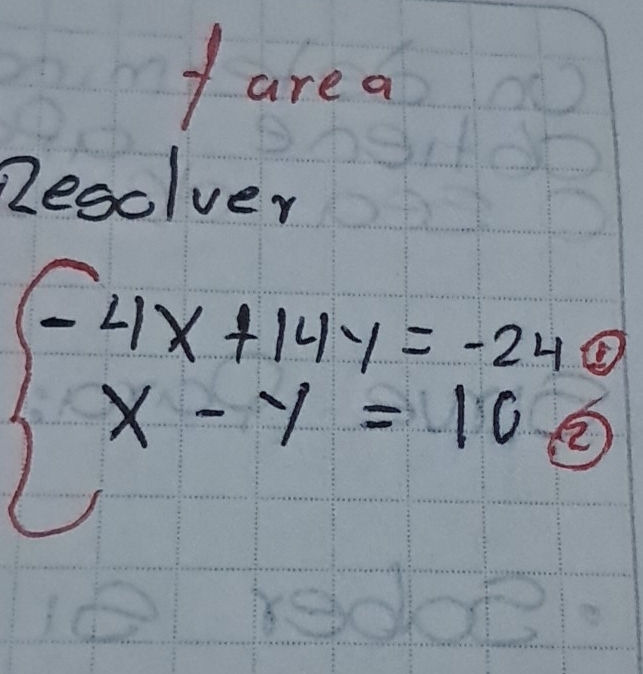 Tarea
Resolver
-4x+14y=-24 ①
x-y=10 ②